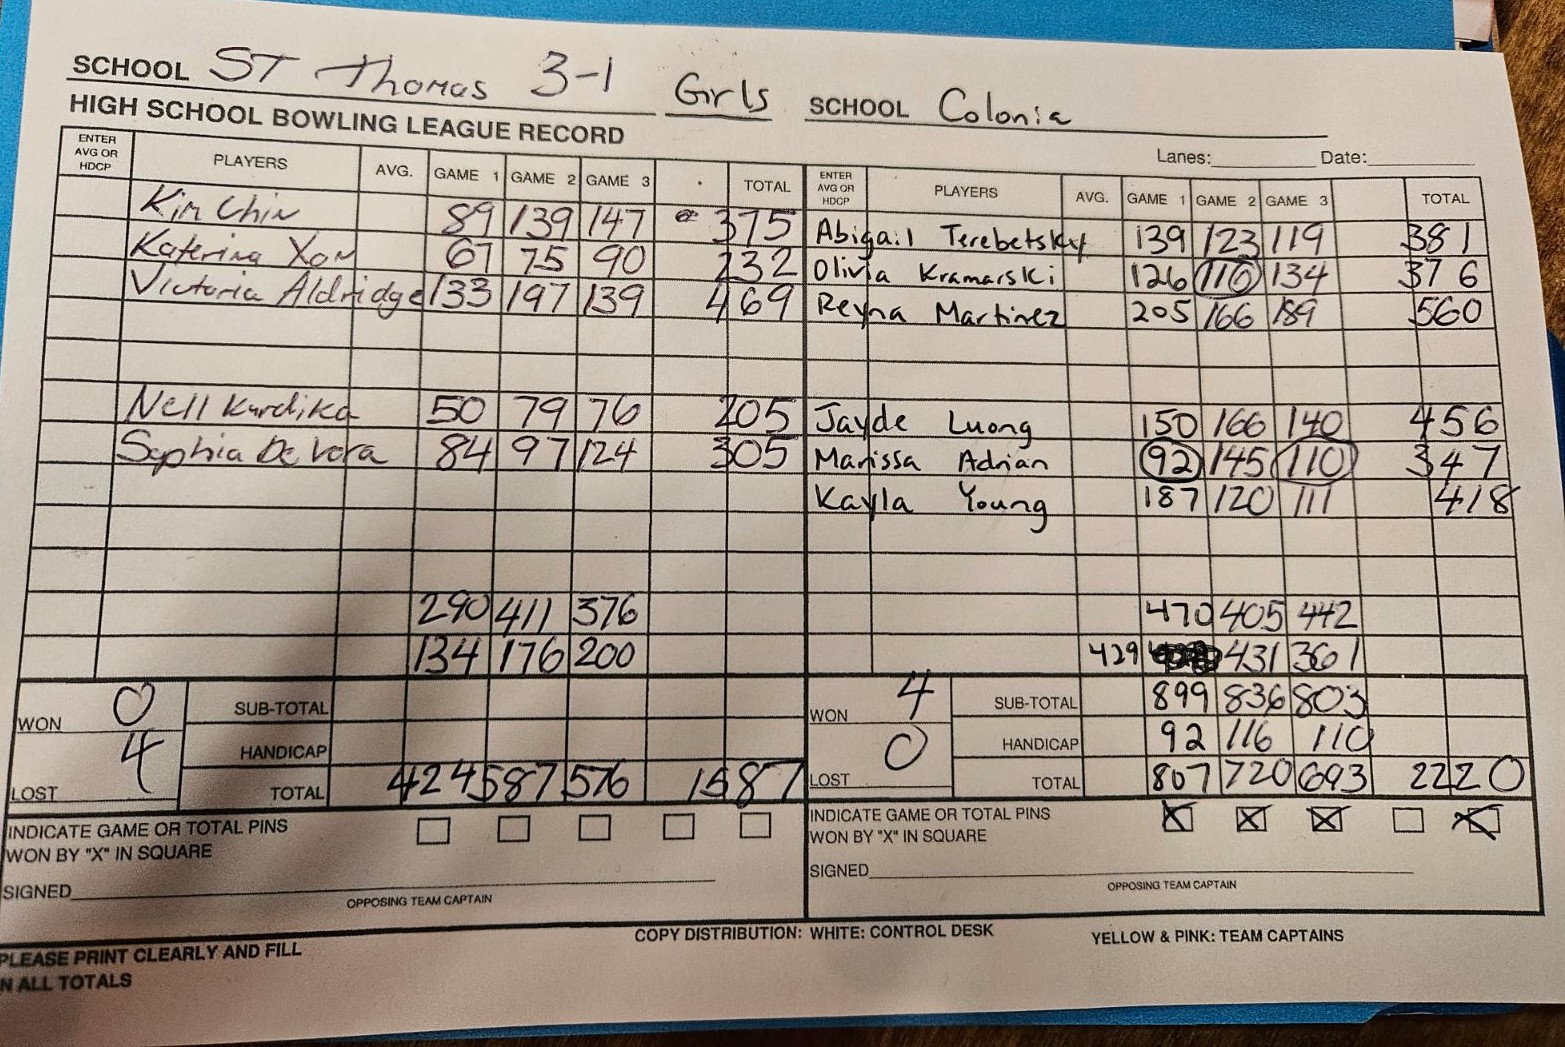 SCHOOL ST Thomas 3-1 Girls SCHOOL Colonia
HIGH SCHOOL BOWLING LEAGUE RECORD
Lanes: Date:
ENTER AVG OR HDCP PLAYERS AVG. GAME 1 GAME 2 GAME 3 TOTAL ENTER AVG OR HDCP PLAYERS AVG. GAME 1 GAME 2 GAME 3 TOTAL
Kim Chin 89 139 147 375 Abigail Terebetsky 139 123 119 381
Katerina 67 75 90 232 Olivia Kramarski 126 116 134 376
Victoria Aldridge 133 197 139 469 Reyna Martinez 205 166 189 560
Nell Kurdika 50 79 76 205 Jayde Luong 150 166 140 456
Sophia De Vera 84 97 124 305 Marissa Adrian 92 145 110 347
Kayla Young 187 120 111 418
290 411 376 470 405 442
134 176 200 429 431 361
WON 0 SUB-TOTAL WON 4 SUB-TOTAL 899 836 803
HANDICAP HANDICAP 92 116 110
LOST 4 TOTAL 424 587 576 1587 LOST 0 TOTAL 807 720 693 2220
INDICATE GAME OR TOTAL PINS INDICATE GAME OR TOTAL PINS
WON BY "X" IN SQUARE WON BY "X" IN SQUARE
SIGNED SIGNED
OPPOSING TEAM CAPTAIN OPPOSING TEAM CAPTAIN
COPY DISTRIBUTION: WHITE: CONTROL DESK YELLOW & PINK: TEAM CAPTAINS
PLEASE PRINT CLEARLY AND FILL
N ALL TOTALS